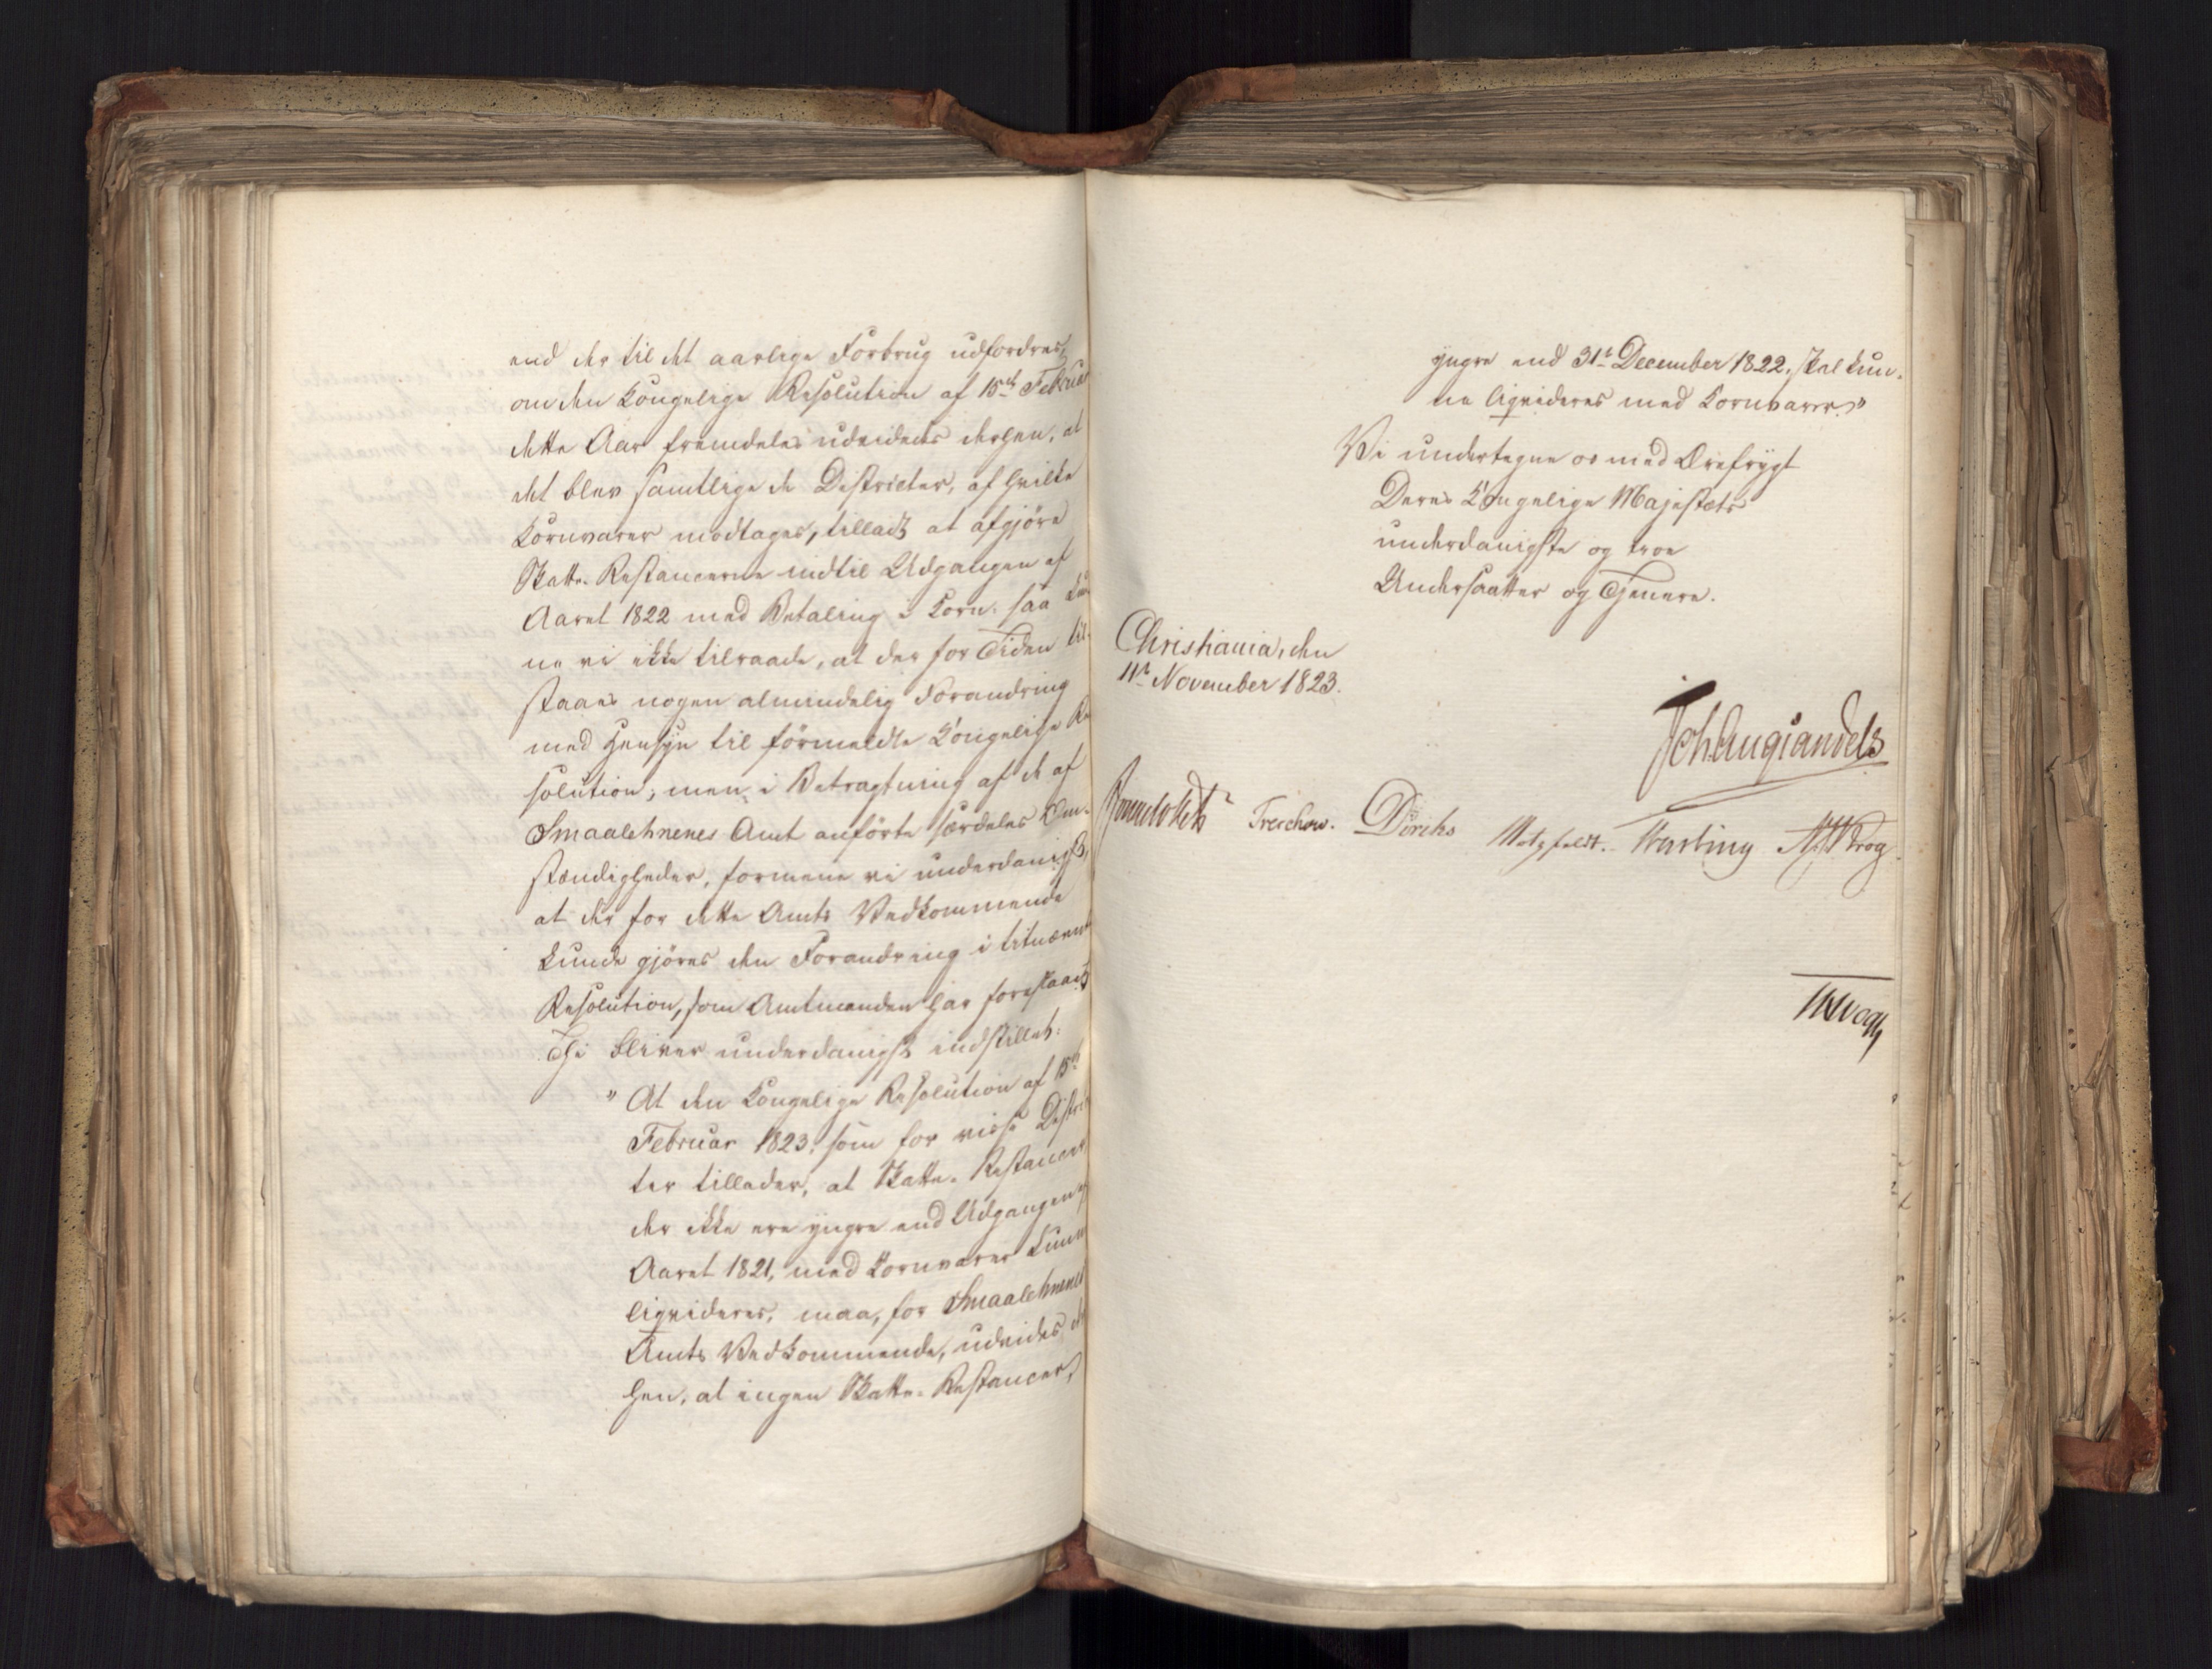 end der til det aarlige Forbrug udfordres,
om den Kongelige Resolution af 15de Februar
dette Aar fremdeles udvides derhen, at
det blev samtlige de Districter, af hvilke
Kornvarer modtages, tilladt at afgjöre
Skatte-Restancerne indtil Udgangen af
Aaret 1822 med Betaling i Korn, saa kun-
ne vi ikke tilraade, at der for Tiden til-
staaes nogen almindelig Forandring
med Hensyn til förmeldte Kongelige Re
solution; men i Betragtning af de af
Smaalehnenes Amt anförte særdeles Om-
stændigheder, formene vi underdanigst,
at der for dette Amts Vedkommende
kunde gjöres den Forandring i
Resolution, som Amtmanden har foreslaaet
Thi bliver underdanigst indstillet:
" At den Kongelige Resolution af 15de
Februar 1823, som for visse Distric
ter tillader, at Skatte-Restancer
der ikke ere yngre end Udgangen af
Aaret 1821, med Kornvarer kunne
liqvideres, maa, for Smaalehnenes
Amts Vedkommende, udvides der
hen, at ingen Skatte-Restancer,
yngre end 31te December 1822, skal kun-
ne liqvideres med Kornvarer."
Vi undertegne os med Ærefrygt
Deres Kongelige Majestæts
underdanigste og troe
Undersaatter og Tjenere.
Christiania, den
11te November 1823.
Joh. Aug. Sandels
Sommerhielm Treschow. Diriks Motzfeldt. Fasting AWKrog
Vogt